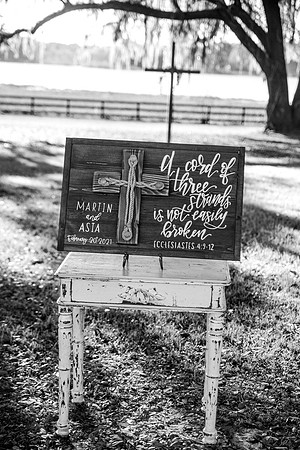 MARTIN
and
ASIA
February 20th 2021
A cord of
three
strands
is not easily
broken
ECCLESIASTES 4:9-12